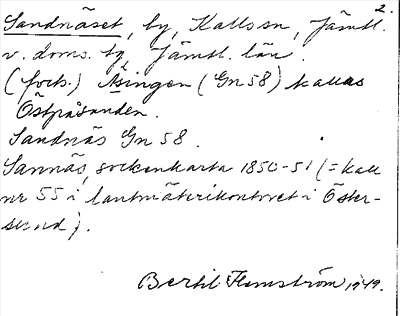 2.
Sandnäset, by, Kalls sn, Jämtl.
v. doms. tg, Jämtl. län.
(forts.) Äsingen (Gn 58) kallas
Östpåsanden.
Sandnäs Gn 58.
Sannäs, sockenkarta 1850-51 (= Kall
nr 55 i lantmäterikontoret i Öster-
sund).
Bertil Flemström 1949.